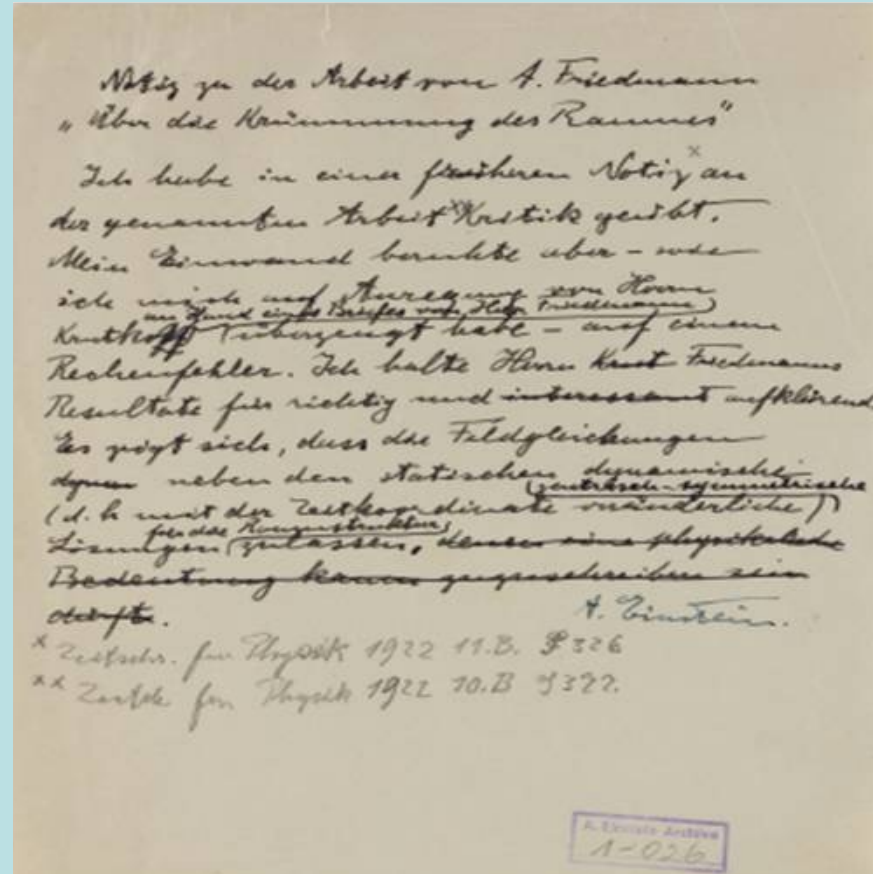 Notiz zu der Arbeit von A. Friedmann
„Über die Krümmung des Raumes"
Ich habe in einer früheren Notiz x an
der genannten Arbeit xx Kritik geübt.
Mein Einwand beruhte aber – wie
ich mich auf Anregung von Herrn
an Hand eines Briefes von Herrn Friedmann
Krutkoff überzeugt habe – auf einem
Rechenfehler. Ich halte Herrn Krut Friedmanns
Resultate für richtig und interessant aufklärend
Es zeigt sich, dass die Feldgleichungen
dynam neben den statischen dynamische
zentrisch-symmetrische
(d. h mit der Zeitkoordinate veränderliche)
für die Raumstruktur
Lösungen zulassen, denen eine physikalische
Bedeutung kaum zuzuschreiben sein
dürfte.
A. Einstein.
x Zeitschr. für Physik 1922 11.B. S 326
xx Zeitsch für Physik 1922 10.B S 377.
A. Einstein Archive
1-026